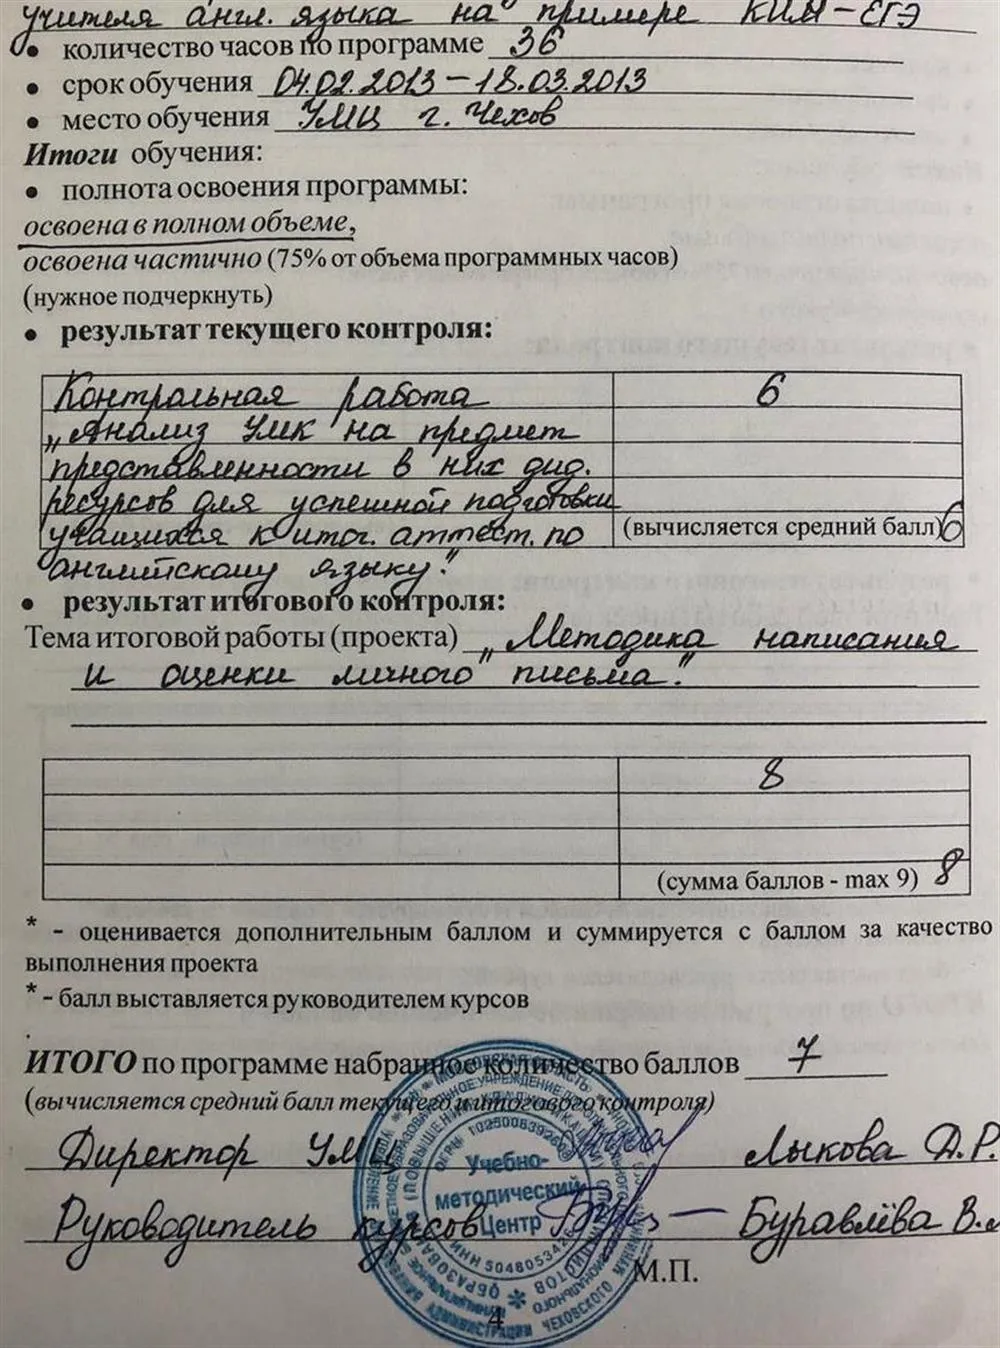 учителя англ. языка на примере КИМ-ЕГЭ
• количество часов по программе 36
• срок обучения 04.02.2013 – 18.03.2013
• место обучения УМЦ г. Чехов
Итоги обучения:
• полнота освоения программы:
освоена в полном объеме,
освоена частично (75% от объема программных часов)
(нужное подчеркнуть)
• результат текущего контроля:
Контрольная работа 6
„Анализ УМК на предмет
представленности в них дид.
ресурсов для успешной подготовки
учащихся к итог. аттест. по (вычисляется средний балл) 6
английскому языку."
• результат итогового контроля:
Тема итоговой работы (проекта) „Методика написания
и оценки личного письма."
8
(сумма баллов - max 9) 8
* - оценивается дополнительным баллом и суммируется с баллом за качество
выполнения проекта
* - балл выставляется руководителем курсов
ИТОГО по программе набранное количество баллов 7
(вычисляется средний балл текущего и итогового контроля)
Директор УМЦ Лыкова Д.Р.
Руководитель курсов Буравлёва В.
Учебно-
методический
Центр
ИНН 5048053446
М.П.
4